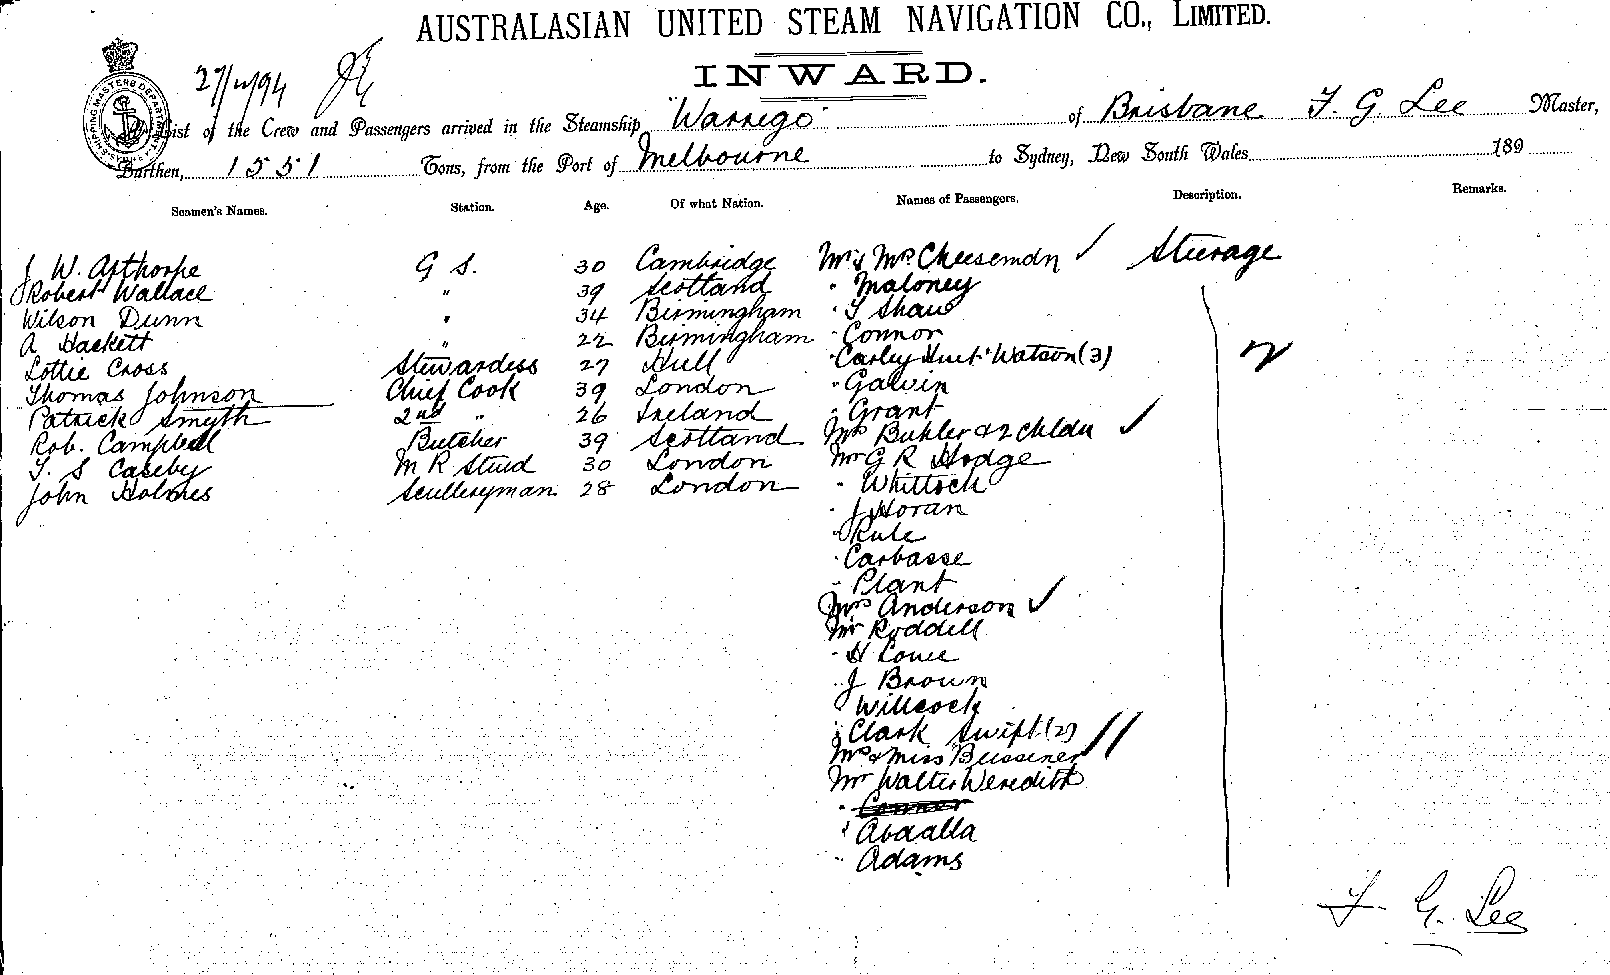 AUSTRALASIAN UNITED STEAM NAVIGATION CO., LIMITED.
INWARD.
27/4/94
SHIPPING MASTERS DEPARTMENT
A List of the Crew and Passengers arrived in the Steamship "Warrego" of Brisbane F. G. Lee Master,
Burthen, 1551 Tons, from the Port of Melbourne to Sydney, New South Wales 189
Seamen's Names. Station. Age. Of what Nation. Names of Passengers. Description. Remarks.
J W. Apthorpe G S. 30 Cambridge Mr & Mrs Cheeseman ✓ Steerage
Robert Wallace " 39 Scotland " Maloney
Wilson Dunn " 34 Birmingham " T Shaw
A Hackett " 22 Birmingham " Connor
Lottie Cross Stewardess 27 Hull " Carley Hunt Watson (3)
Thomas Johnson Chief Cook 39 London " Galvin
Patrick Smyth 2nd " 26 Ireland " Grant
Rob. Campbell Butcher 39 Scotland Mrs Buhler & 2 chldn ✓
T. S Caseby M R Stwd 30 London Mr G R Hodge
John Holmes Sculleryman 28 London " Whittock
" J Horan
" Rule
" Carbasse
" Plant
Mrs Anderson ✓
Mr Roddell
" H Lowe
" J Brown
" Willcock
" Clark Swift (2)
Mrs & Miss Beissener //
Mr Walter Weredith
" Conner
" Abdalla
" Adams
F. G. Lee